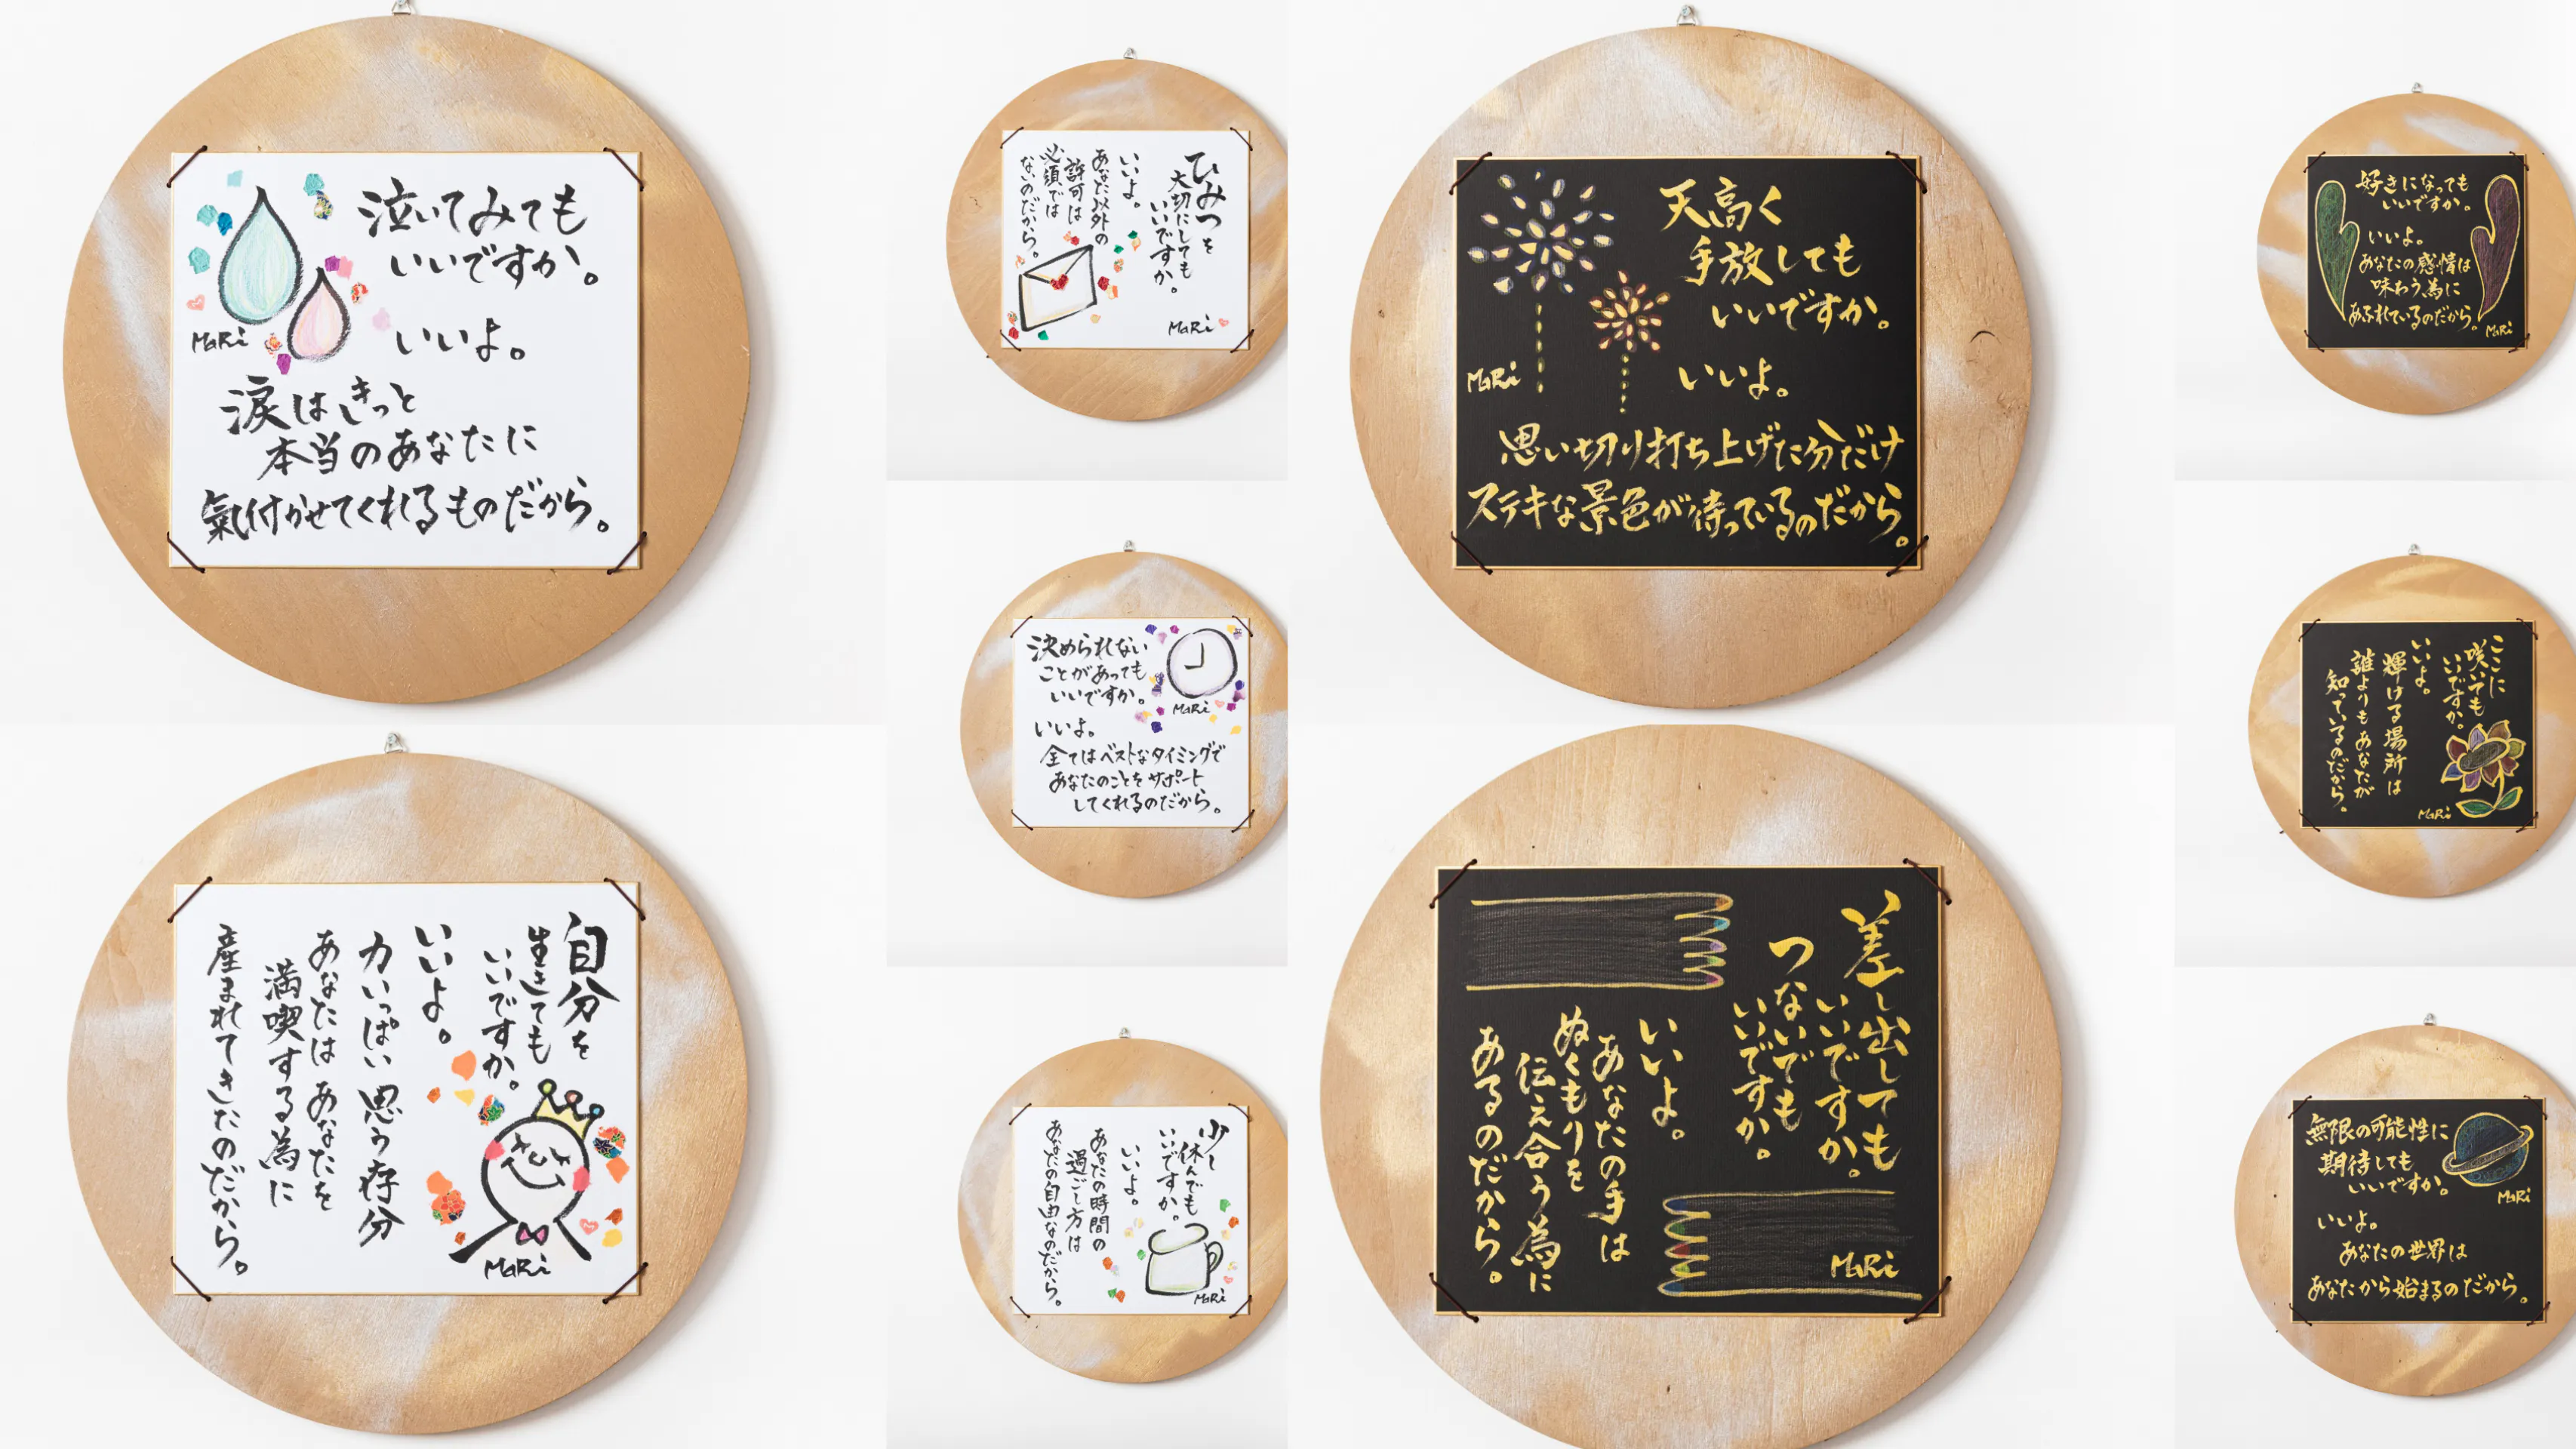 泣いてみても
いいですか。
いいよ。
涙はきっと
本当のあなたに
氣付かせてくれるものだから。
MaRi
ひみつを
大切にしても
いいですか。
いいよ。
あなた以外の
許可は
必須では
ないのだから。
MaRi
決められない
ことがあっても
いいですか。
いいよ。
全てはベストなタイミングで
あなたのことをサポート
してくれるのだから。
MaRi
自分を
生きても
いいですか。
いいよ。
力いっぱい思う存分
あなたはあなたを
満喫する為に
産まれてきたのだから。
MaRi
少し
休んでも
いいですか。
いいよ。
あなたの時間の
過ごし方は
あなたの自由なのだから。
MaRi
天高く
手放しても
いいですか。
いいよ。
思い切り打ち上げた分だけ
ステキな景色が待っているのだから。
MaRi
好きになっても
いいですか。
いいよ。
あなたの感情は
味わう為に
あふれているのだから。
MaRi
ここに
咲いても
いいですか。
いいよ。
輝ける場所は
誰よりもあなたが
知っているのだから。
MaRi
差し出しても
いいですか。
つないでも
いいですか。
いいよ。
あなたの手は
ぬくもりを
伝え合う為に
あるのだから。
MaRi
無限の可能性に
期待しても
いいですか。
いいよ。
あなたの世界は
あなたから始まるのだから。
MaRi